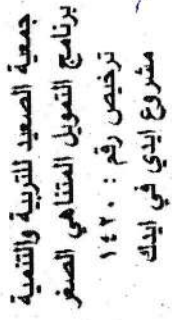 جمعية الصعيد للتربية والتنمية
برنامج التمويل المتناهي الصغر
ترخيص رقم : ١٤٢٠
مشروع ايدي في ايدك